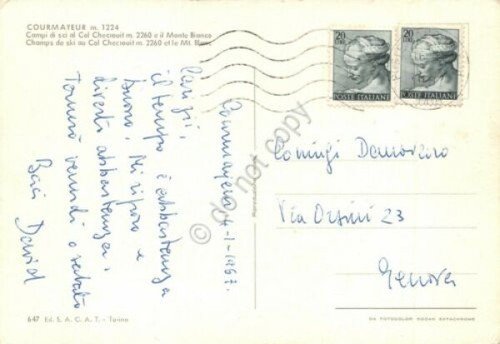 COURMAYEUR m. 1224
Campi di sci al Col Checrouit m. 2260 e il Monte Bianco
Champs de ski au Col Checrouit m. 2260 et le Mt. Blanc
Courmayeur 4-1-1967.
Carissimi,
il tempo è abbastanza
buono. Mi riposo e
diverto abbastanza.
Tornerò venerdì o sabato
Baci David
20
LIRE
POSTE ITALIANE
20
LIRE
POSTE ITALIANE
Via Orsini 23
Genova
647 Ed. S. A. C. A. T. - Torino
DA FOTOCOLOR KODAK EKTACHROME
do not copy